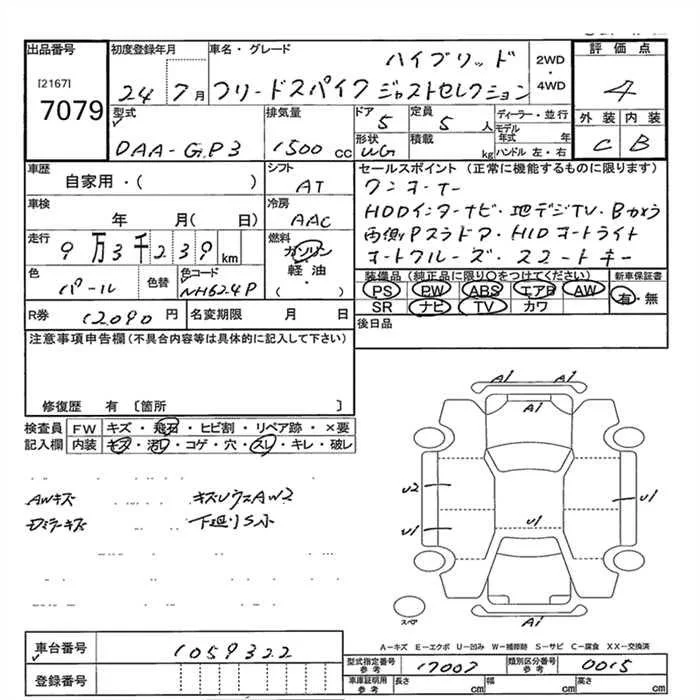 出品番号
[2167]
7079
初度登録年月
24 7月
車名・グレード
ハイブリッド
フリードスパイク ジャストセレクション
2WD・4WD
評価点
4
外装 内装
C B
型式
DAA-GP3
排気量
1500 cc
ドア 5
定員 5 人
形状 WG
積載 kg
ディーラー・並行
モデル年式 年
ハンドル 左・右
車歴
自家用・( )
シフト
AT
車検
年 月( 日)
冷房
AAC
走行
9万3千239 km
燃料
ガソリン
軽油
( )
色
パール
色替
色コード
NH624P
セールスポイント(正常に機能するものに限ります)
ワンオーナー
HDDインターナビ・地デジTV・Bカメラ
両側Pスラドア・HIDオートライト
オートクルーズ・スマートキー
装備品(純正品に限り○をつけてください)
PS PW ABS エアB AW
SR ナビ TV カワ
新車保証書
有・無
後日品
R券 12090 円
名変期限 月 日
注意事項申告欄(不具合内容等は具体的に記入して下さい)
修復歴 有 [箇所 ]
検査員記入欄
FW キズ・飛石・ヒビ割・リペア跡・×要
内装 キズ・汚レ・コゲ・穴・スレ・キレ・破レ
AWキズ
キズしワニAW2
Dミラーキズ
下廻りS小
A1 A1
A1
U2
U1
U1
U1
スペア
A-キズ E-エクボ U-凹み W-補修跡 S-サビ C-腐食 XX-交換済
車台番号
1059322
登録番号
型式指定番号 参考
17007
類別区分番号 参考
0015
車庫証明用 参考
長さ cm
幅 cm
高さ cm